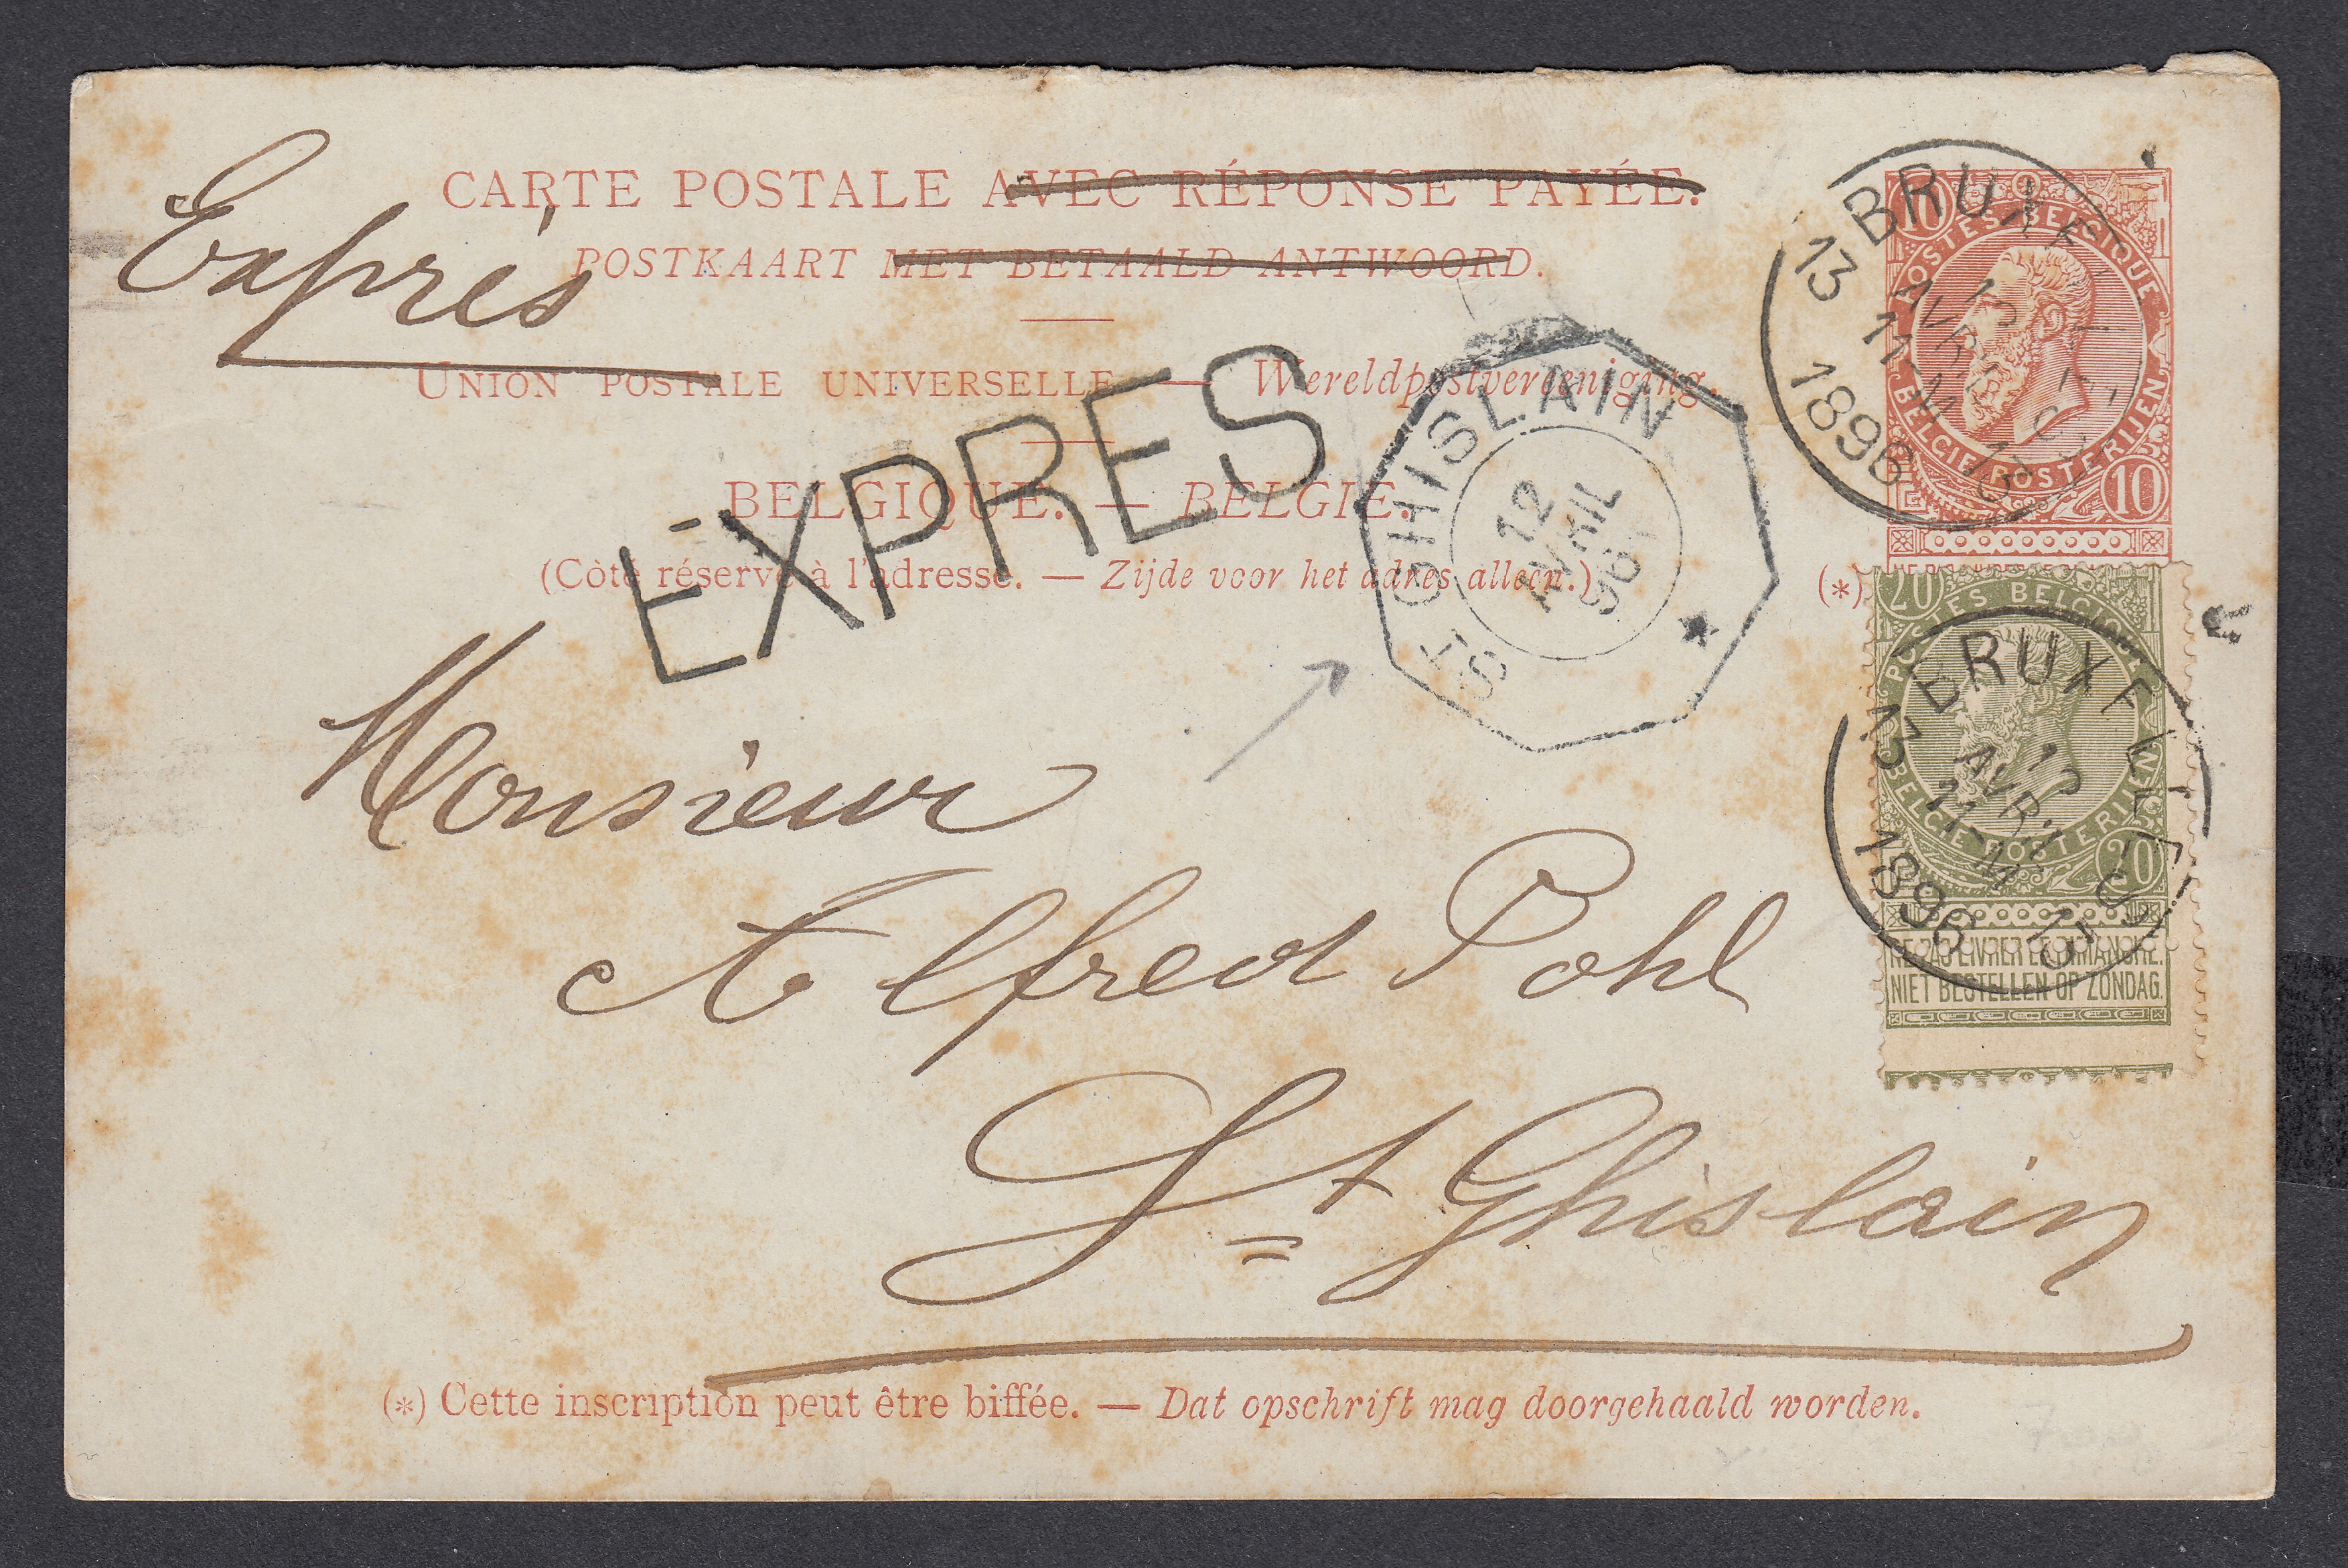 Exprès
CARTE POSTALE AVEC RÉPONSE PAYÉE.
POSTKAART MET BETAALD ANTWOORD.
UNION POSTALE UNIVERSELLE — Wereldpostvereeniging.
EXPRES
BELGIQUE. — BELGIË.
(Côté réservé à l'adresse. — Zijde voor het adres alleen.)
(*)
ST GHISLAIN
12
AVRIL
96
10 POSTES BELGIQUE
BELGIE POSTERIJEN 10
BRUXELLES
13 13
12
AVRIL
11-M
1896
20 POSTES BELGIQUE
BELGIE POSTERIJEN 20
NE PAS LIVRER LE DIMANCHE.
NIET BESTELLEN OP ZONDAG.
BRUXELLES
13 13
12
AVRIL
11-M
1896
Monsieur
Alfred Pohl
St Ghislain
(*) Cette inscription peut être biffée. — Dat opschrift mag doorgehaald worden.